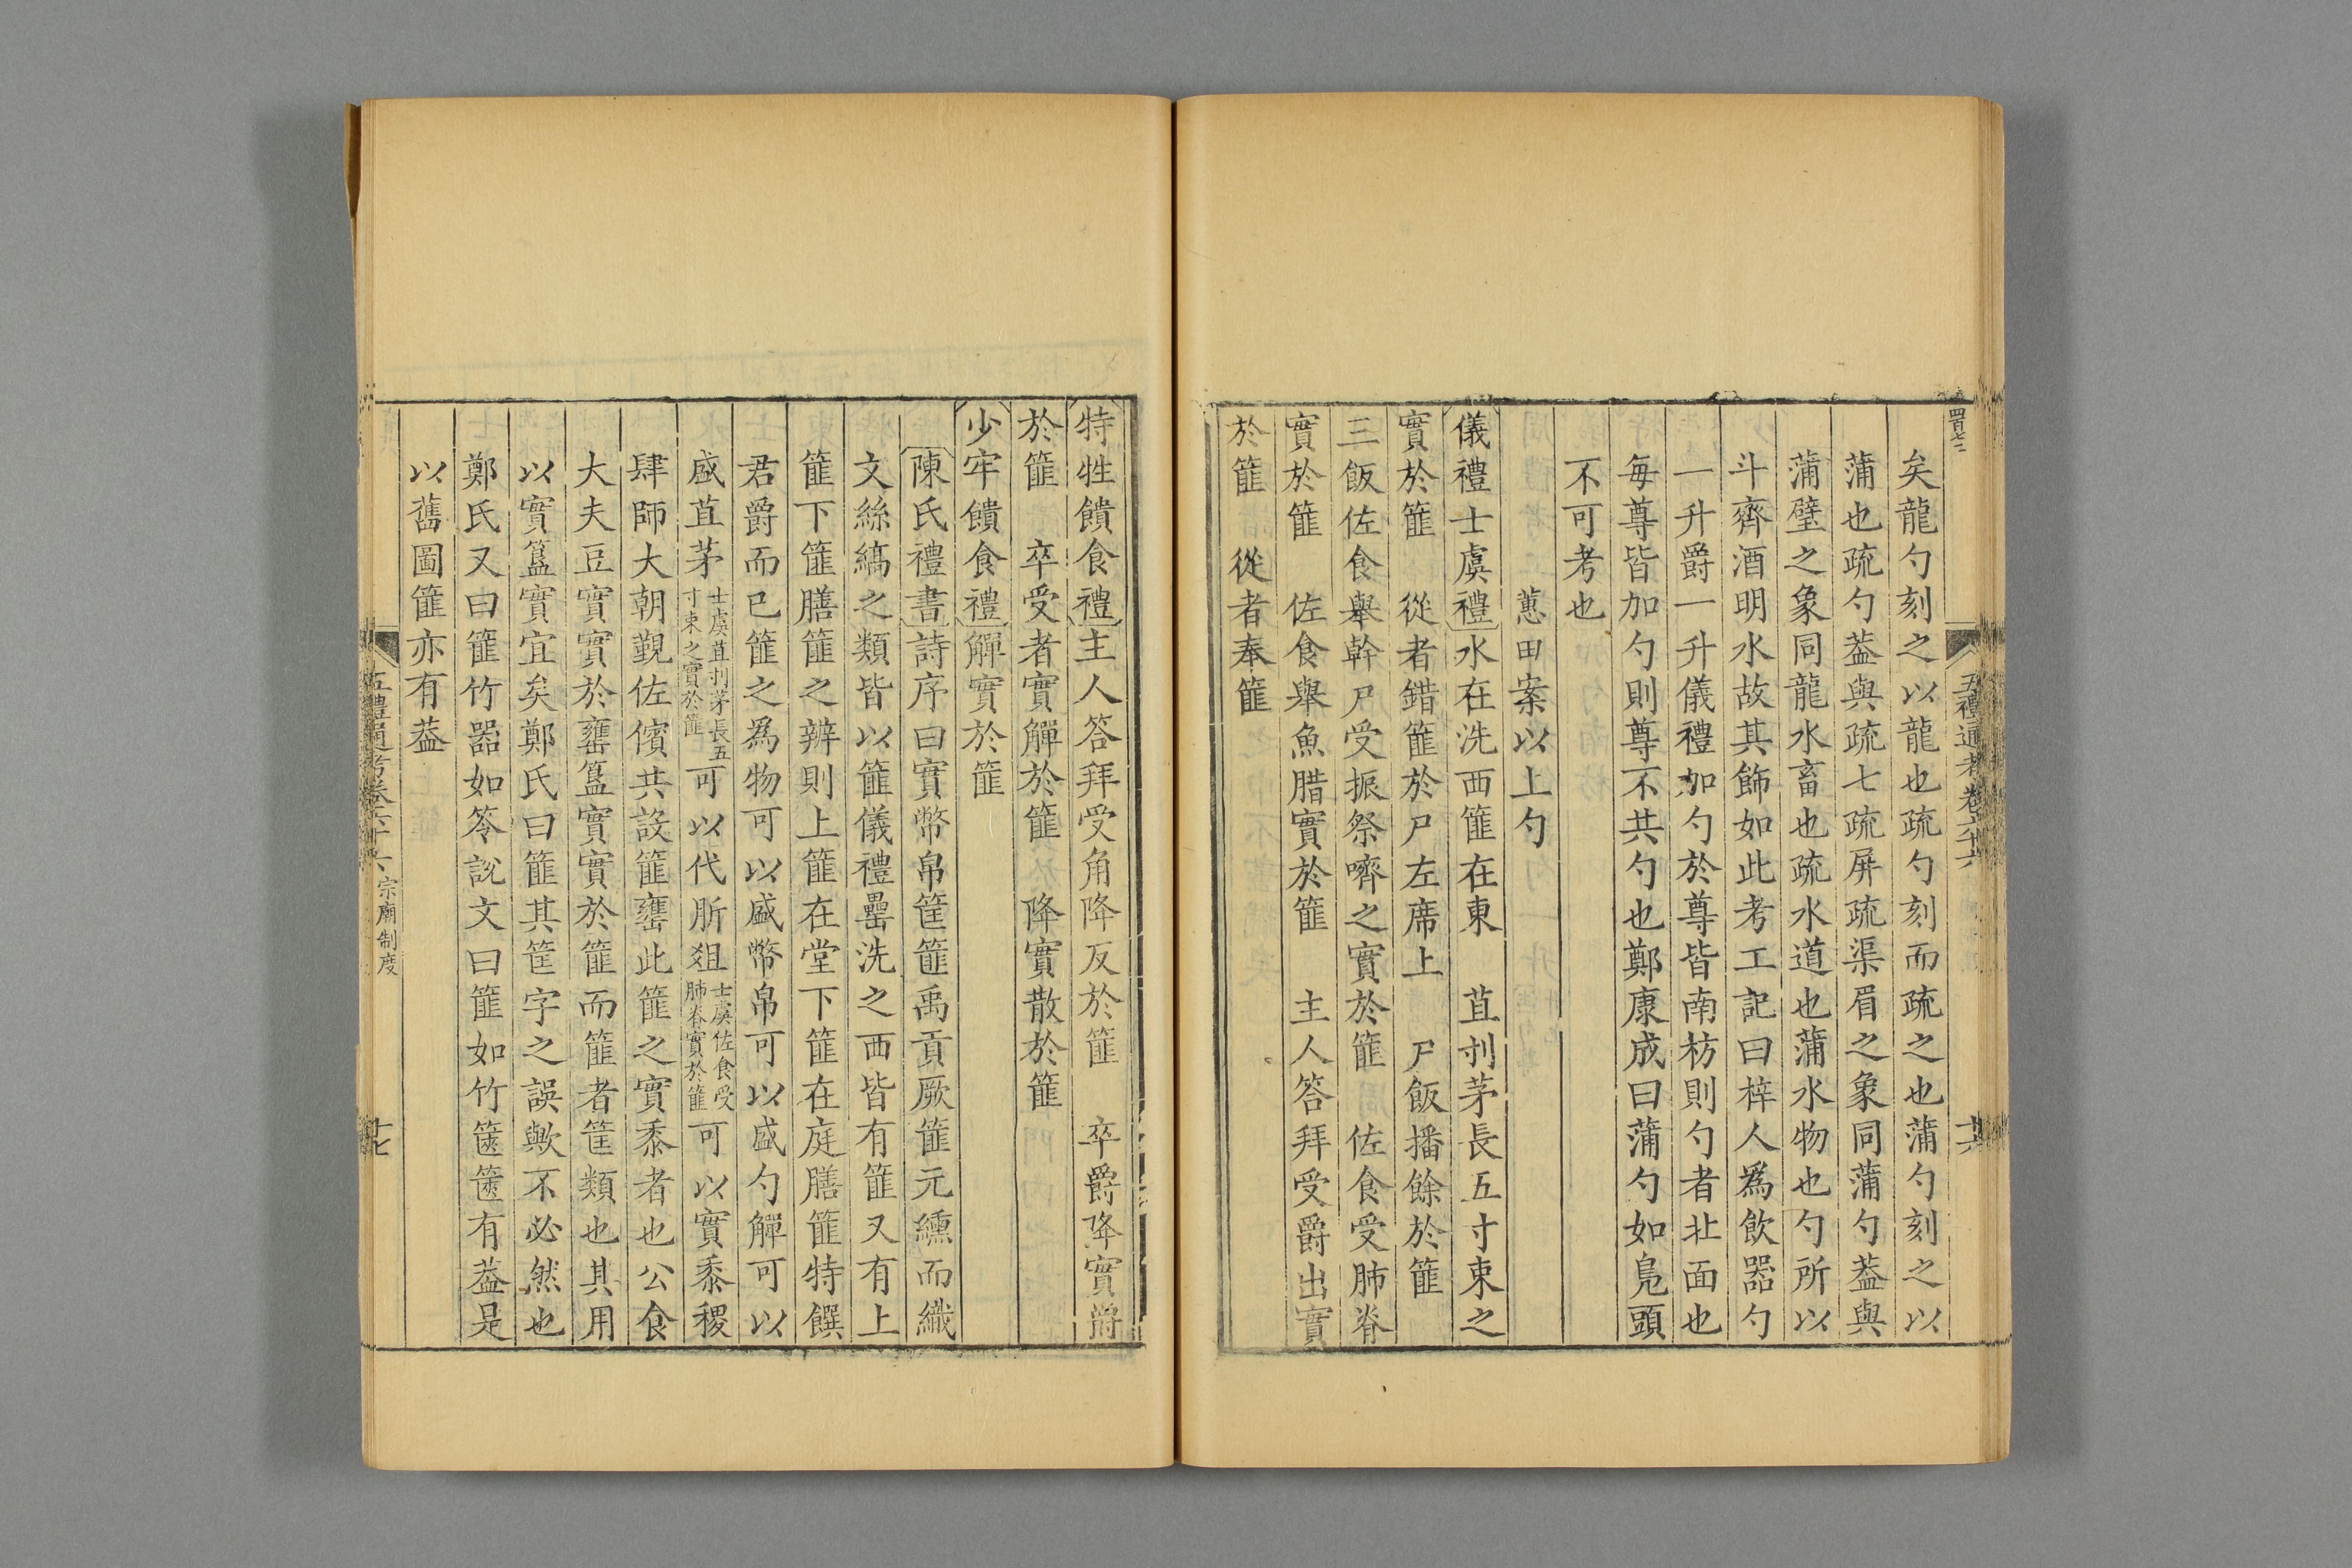 五禮通考卷六十六
十六
矣龍勺刻之以龍也疏勺刻而疏之也蒲勺刻之以
蒲也疏勺葢與疏七疏屏疏渠眉之象同蒲勺葢與
蒲璧之象同龍水畜也疏水道也蒲水物也勺所以
斗齊酒明水故其飾如此考工記曰梓人為飲器勺
一升爵一升儀禮加勺於尊皆南枋則勺者北面也
每尊皆加勺則尊不共勺也鄭康成曰蒲勺如鳬頭
不可考也
蕙田案以上勺
儀禮士虞禮水在洗西篚在東　苴刌茅長五寸束之
實於篚　從者錯篚於尸左席上　尸飯播餘於篚
三飯佐食舉幹尸受振祭嚌之實於篚　佐食受肺脊
實於篚　佐食舉魚腊實於篚　主人答拜受爵出實
於篚　從者奉篚
特牲饋食禮主人答拜受角降反於篚　卒爵降實爵
於篚　卒受者實觶於篚　降實散於篚
少牢饋食禮觶實於篚
陳氏禮書詩序曰實幣帛筐篚禹貢厥篚元纁而織
文絲縞之類皆以篚儀禮罍洗之西皆有篚又有上
篚下篚膳篚之辨則上篚在堂下篚在庭膳篚特饌
君爵而已篚之為物可以盛幣帛可以盛勺觶可以
盛苴茅士虞苴刌茅長五寸束之實於篚可以代肵俎士虞佐食受肺脊實於篚可以實黍稷
肆師大朝覲佐儐共設篚罋此篚之實黍者也公食
大夫豆實實於罋簋實實於篚而篚者筐類也其用
以實簋實宜矣鄭氏曰篚其筐字之誤歟不必然也
鄭氏又曰篚竹器如笭說文曰篚如竹篋篋有葢是
以舊圖篚亦有葢
五禮通考卷六十六
宗廟制度
十七